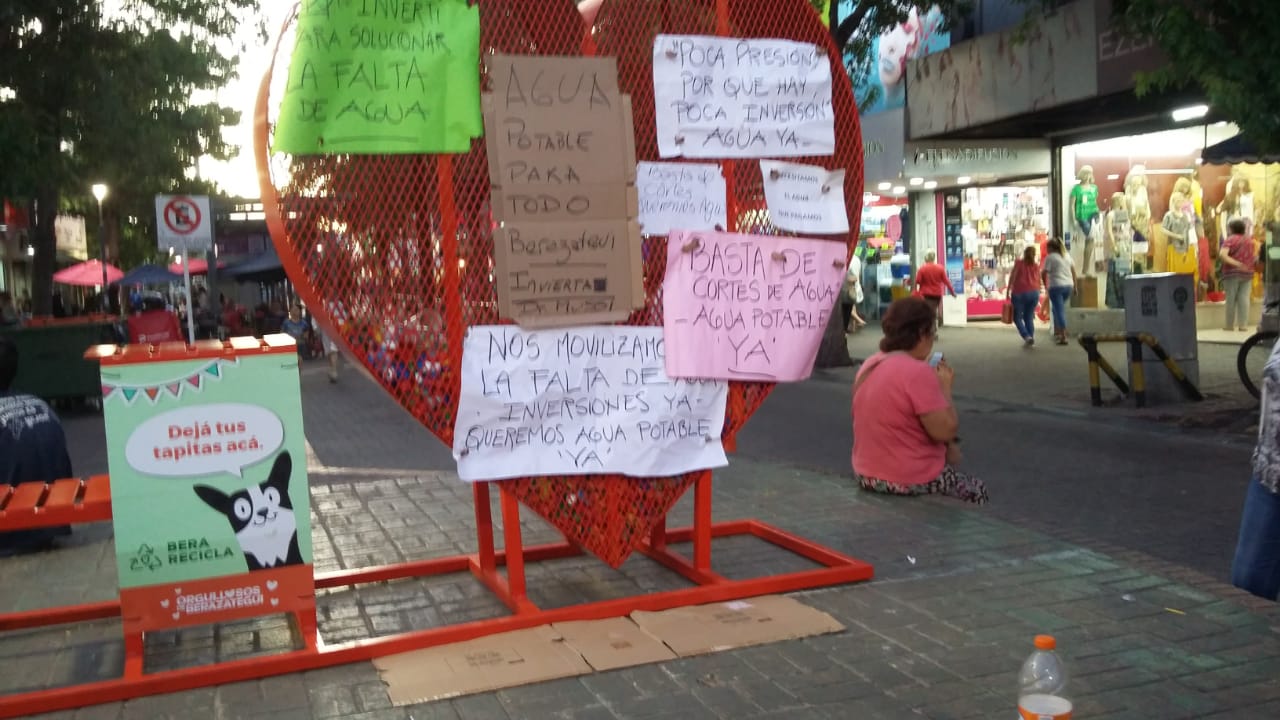 INVERTI
PARA SOLUCIONAR
LA FALTA
DE AGUA
AGUA
POTABLE
PARA
TODO
Berazategui
INVIERTA
"POCA PRESION
POR QUE HAY
POCA INVERSON"
AGUA YA-
Basta de
Cortes
queremos Agua
EL AGUA
NO PAGAMOS
"BASTA DE
CORTES DE AGUA"
- AGUA POTABLE
'YA'
NOS MOVILIZAMO
LA FALTA DE
- INVERSIONES YA-
QUEREMOS AGUA POTABLE
'YA'
Dejá tus
tapitas acá.
BERA
RECICLA
ORGULLOSOS
DE BERAZATEGUI